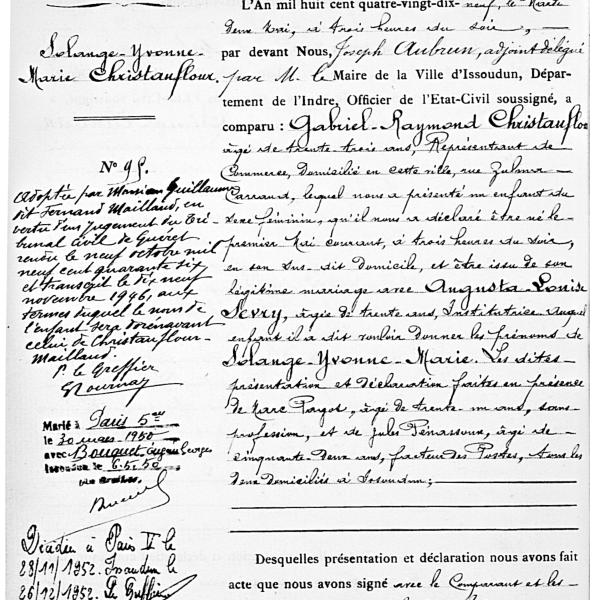 Solange-Yvonne-
Marie Christauflour.
N° 95.
Adoptée par Monsieur Guillaume
dit Fernand Maillaud, en
vertu d'un jugement du Tri-
bunal Civil de Guéret
rendu le neuf octobre mil
neuf cent quarante six
et transcrit le dix neuf
novembre 1946, aux
termes duquel le nom de
l'enfant sera dorénavant
celui de Christauflour-
Maillaud.
P. le Greffier
Marié à Paris 5ème
le 30 mars 1950
avec Bouquet Eugène Georges
Issoudun le 6.5.50
Décédée à Paris V le
28/11/1952. Issoudun le
26/12/1952. Le Greffier
L'An mil huit cent quatre-vingt-dix-neuf, le Mardi
deux Mai, à trois heures du soir,
par devant Nous, Joseph Aubrun, adjoint délégué
par M. le Maire de la Ville d'Issoudun, Dépar-
tement de l'Indre, Officier de l'Etat-Civil soussigné, a
comparu : Gabriel-Raymond Christauflour
âgé de trente-trois ans, Représentant de
Commerce, Domicilié en cette ville, rue Zulma-
Carraud, lequel nous a présenté un enfant du
sexe féminin, qu'il nous a déclaré être né le
premier Mai courant, à trois heures du soir,
en son sus-dit domicile, et être issu de son
légitime mariage avec Augusta-Louise
Sevry, âgée de trente ans, Institutrice auquel
enfant il a dit vouloir donner les prénoms de
Solange-Yvonne-Marie. Les dites
présentation et déclaration faites en présence
de Marc Pargot, âgé de trente-un ans, sans
profession, et de Jules Pénassoux, âgé de
cinquante-deux ans, facteur des Postes, tous les
deux domiciliés à Issoudun ;
Desquelles présentation et déclaration nous avons fait
acte que nous avons signé avec le Comparant et les